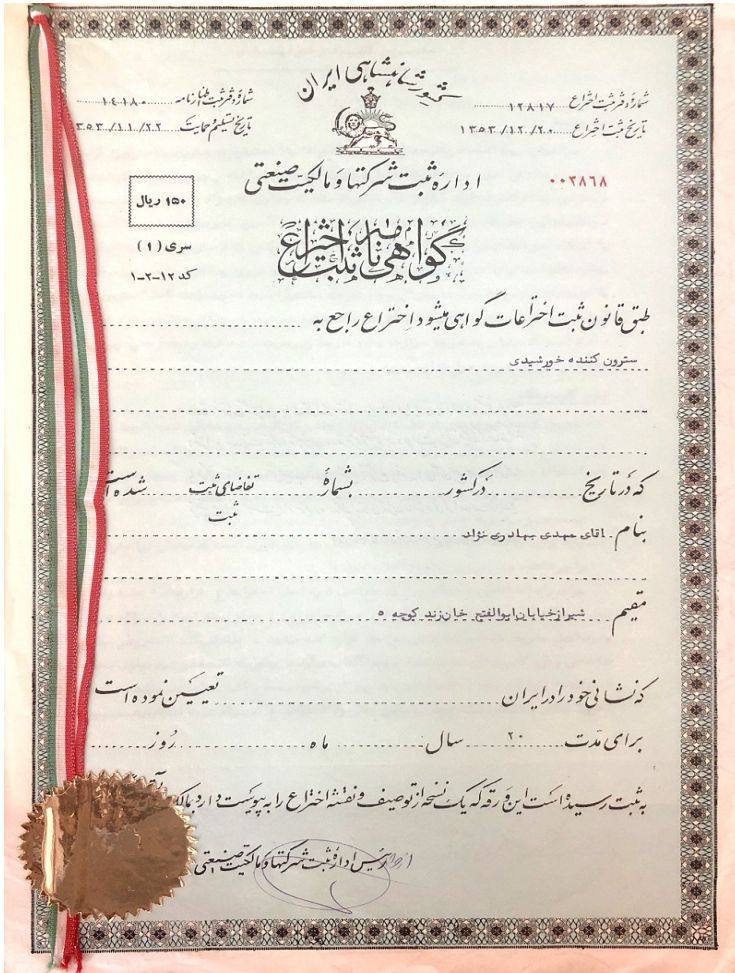 کشور شاهنشاهی ایران
شماره دفتر ثبت اختراع ۱۲۸۱۷
تاریخ ثبت اختراع ۱۳۵۳/۱۲/۲۰
شماره دفتر ثبت اظهارنامه ۱۴۱۸۰
تاریخ تسلیم حمایت ۳۵۳/۱۱/۲۲
اداره ثبت شرکتها و مالکیت صنعتی
۰۰۲۸۶۸
۱۵۰ ریال
سری (۱)
کد ۱۲-۲-۱
گواهی نامه ثبت اختراع
طبق قانون ثبت اختراعات گواهی میشود اختراع راجع به
سترون کننده خورشیدی
که در تاریخ در کشور بشمارهٔ تقاضای ثبت شده است
ثبت
بنام اقای مهدی بهادری نژاد
مقیم شیراز خیابان ابوالفتح خان زند کوچه ۵
که نشانی خود را در ایران تعیین نموده است
برای مدت ۲۰ سال ماه روز
به ثبت رسیده است این ورقه که یک نسخه از توصیف و نقشه اختراع را به پیوست دارد
رئیس اداره ثبت شرکتها و مالکیت صنعتی